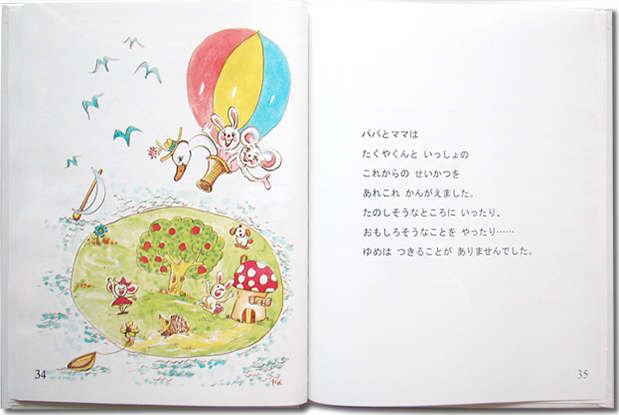 パパとママは
たくやくんと いっしょの
これからの せいかつを
あれこれ かんがえました。
たのしそうなところに いったり、
おもしろそうなことを やったり……
ゆめは つきることが ありませんでした。
34
35